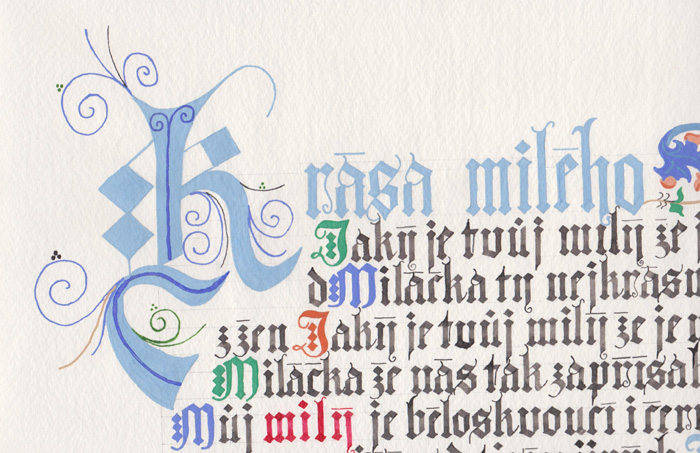 Krása milého
Jaký je tvůj milý že j
dMiláčka ty nejkrásn
z žen Jaký je tvůj milý že je
Miláčka že nás tak zapřísah
Můj milý je běloskvoucí i čer